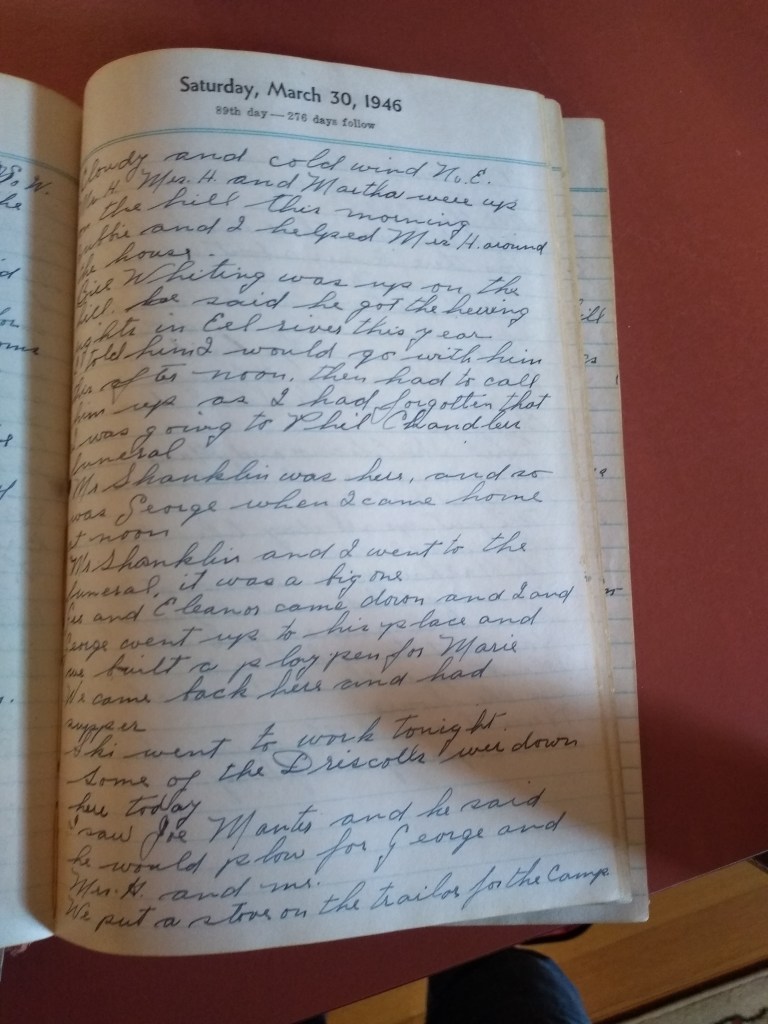 Saturday, March 30, 1946
89th day — 276 days follow
Cloudy and cold wind N.E.
Mr H. Mrs. H. and Martha were up
on the hill this morning
and I helped Mrs H. around
the house.
Bill Whiting was up on the
hill. he said he got the herring
rights in Eel river this year
I told him I would go with him
this after noon, then had to call
him up as I had forgotten that
I was going to Phil Chandlers
funeral
Mr Shanklin was here, and so
was George when I came home
at noon
Mr Shanklin and I went to the
funeral, it was a big one
and Eleanor came down and I and
George went up to his place and
we built a play pen for Marie
We came back here and had
supper
went to work tonight.
Some of the Driscolls were down
here today
I saw Joe Mantes and he said
he would plow for George and
Mrs. H. and me.
We put a stove on the trailor for the Camp.